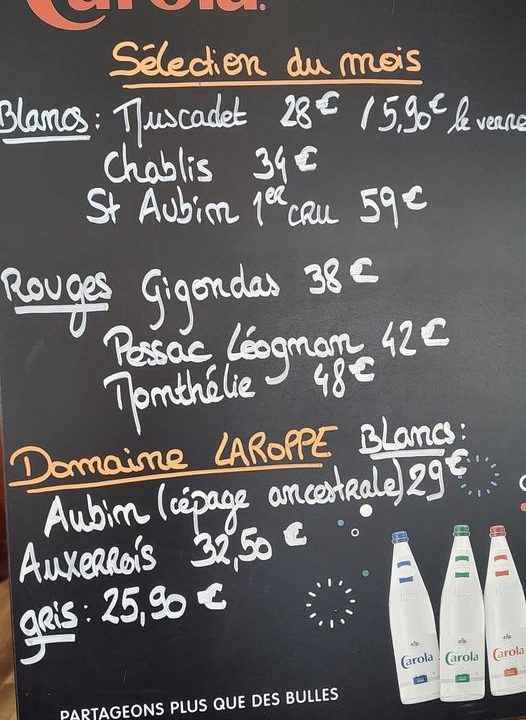 Carola.
Sélection du mois
Blancs: Muscadet 28€ / 5,90€ le verre
Chablis 34€
St Aubin 1er CRU 59€
Rouges Gigondas 38€
Pessac Léognan 42€
Monthélie 48€
Domaine LAROPPE BLancs:
Aubin (cépage ancestrale) 29€
AUXERROIS 32,50€
gRis: 25,90€
Carola Carola Carola
PARTAGEONS PLUS QUE DES BULLES